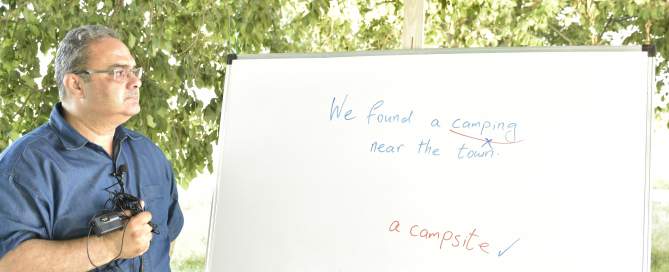 We found a camping
near the town.
a campsite